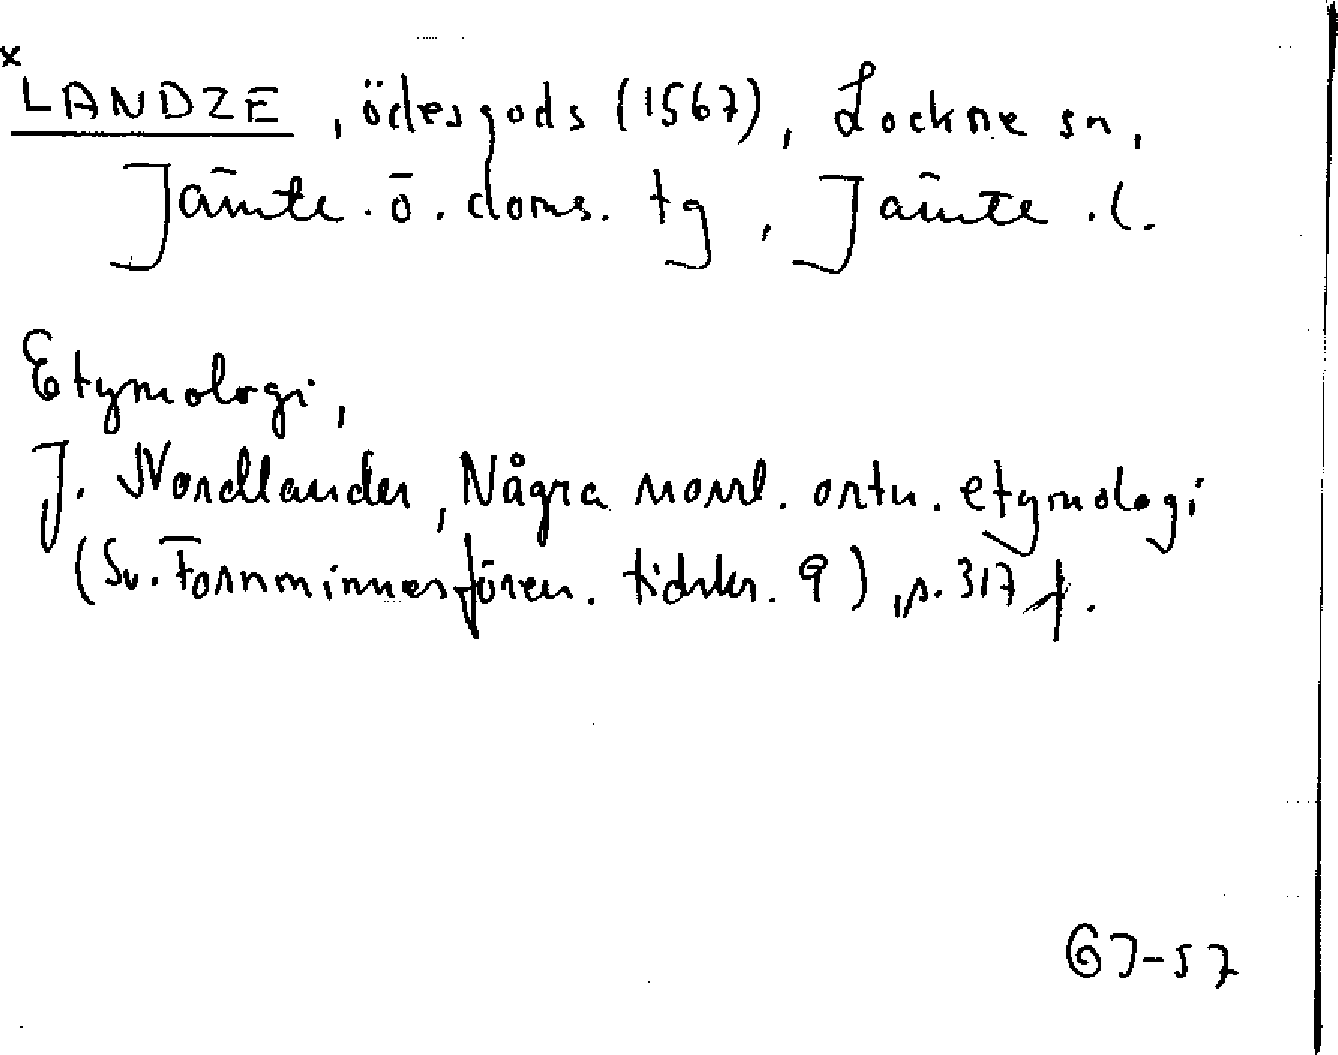 x
LANDZE, ödesgods (1567), Lockne sn,
Jämte. ö. doms. tg, Jämte. l.
Etymologi,
J. Nordlander, Några norrl. ortn. etymologi
(Sv. Fornminnesfören. tidskr. 9), s. 317 f.
GJ-57